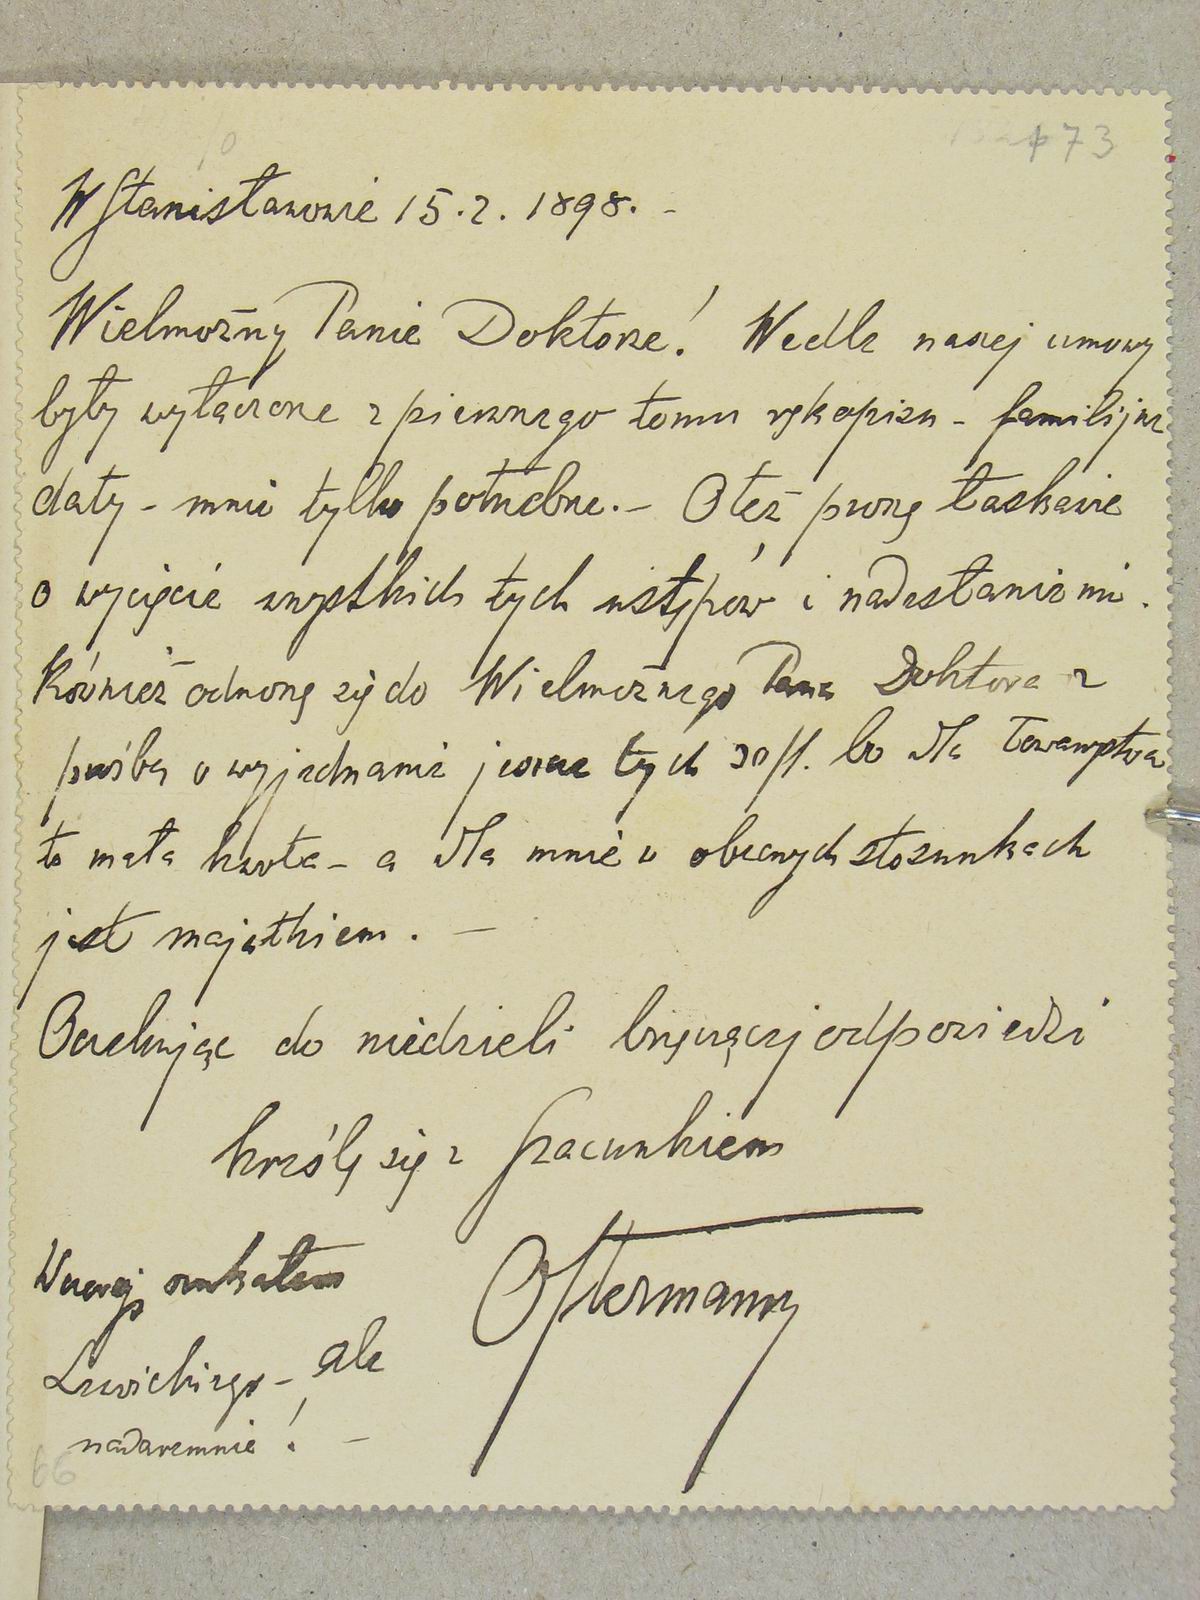 173
W Stanisławowie 15.2. 1898. -
Wielmożny Panie Doktorze! Wedle naszej umowy
były wyłączone z pierwszego tomu rękopisu - familijne
daty - mnie tylko potrzebne. - Otóż proszę łaskawie
o wycięcie wszystkich tych ustępów i nadesłanie mi.
Również odnoszę się do Wielmożnego Pana Doktora z
prośbą o wyjednanie jeszcze tych 30 fl. bo dla Towarzystwa
to mała kwota - a dla mnie w obecnych stosunkach
jest majątkiem. -
Oczekując do niedzieli bieżącej odpowiedzi
kreślę się z szacunkiem
Ostermann
Wczoraj szukałem
Lewickiego - ale
nadaremnie! -
66